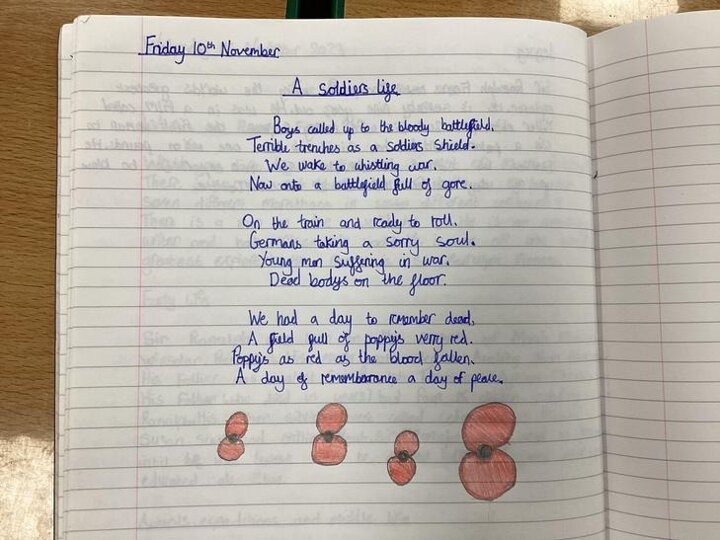 Friday 10th November
A soldiers life
Boys called up to the bloody battlefield.
Terrible trenches as a soldiers shield.
We wake to whistling war.
Now onto a battlefield full of gore.
On the train and ready to roll.
Germans taking a sorry soul.
Young men suffering in war.
Dead bodys on the floor.
We had a day to remember dead,
A field full of poppys verry red.
Poppys as red as the blood fallen.
A day of rememberance a day of peace.